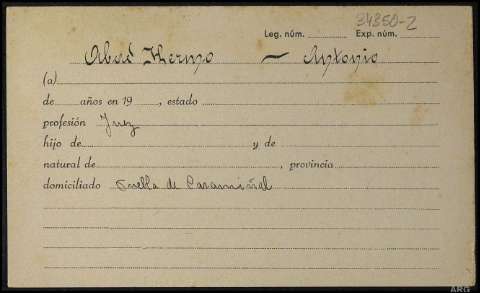 34350-2
Leg. núm. Exp. núm.
Abad Hermo — Antonio
(a)
de años en 19 , estado
profesión Juez
hijo de y de
natural de , provincia
domiciliado Puebla de Caramiñal
ARG